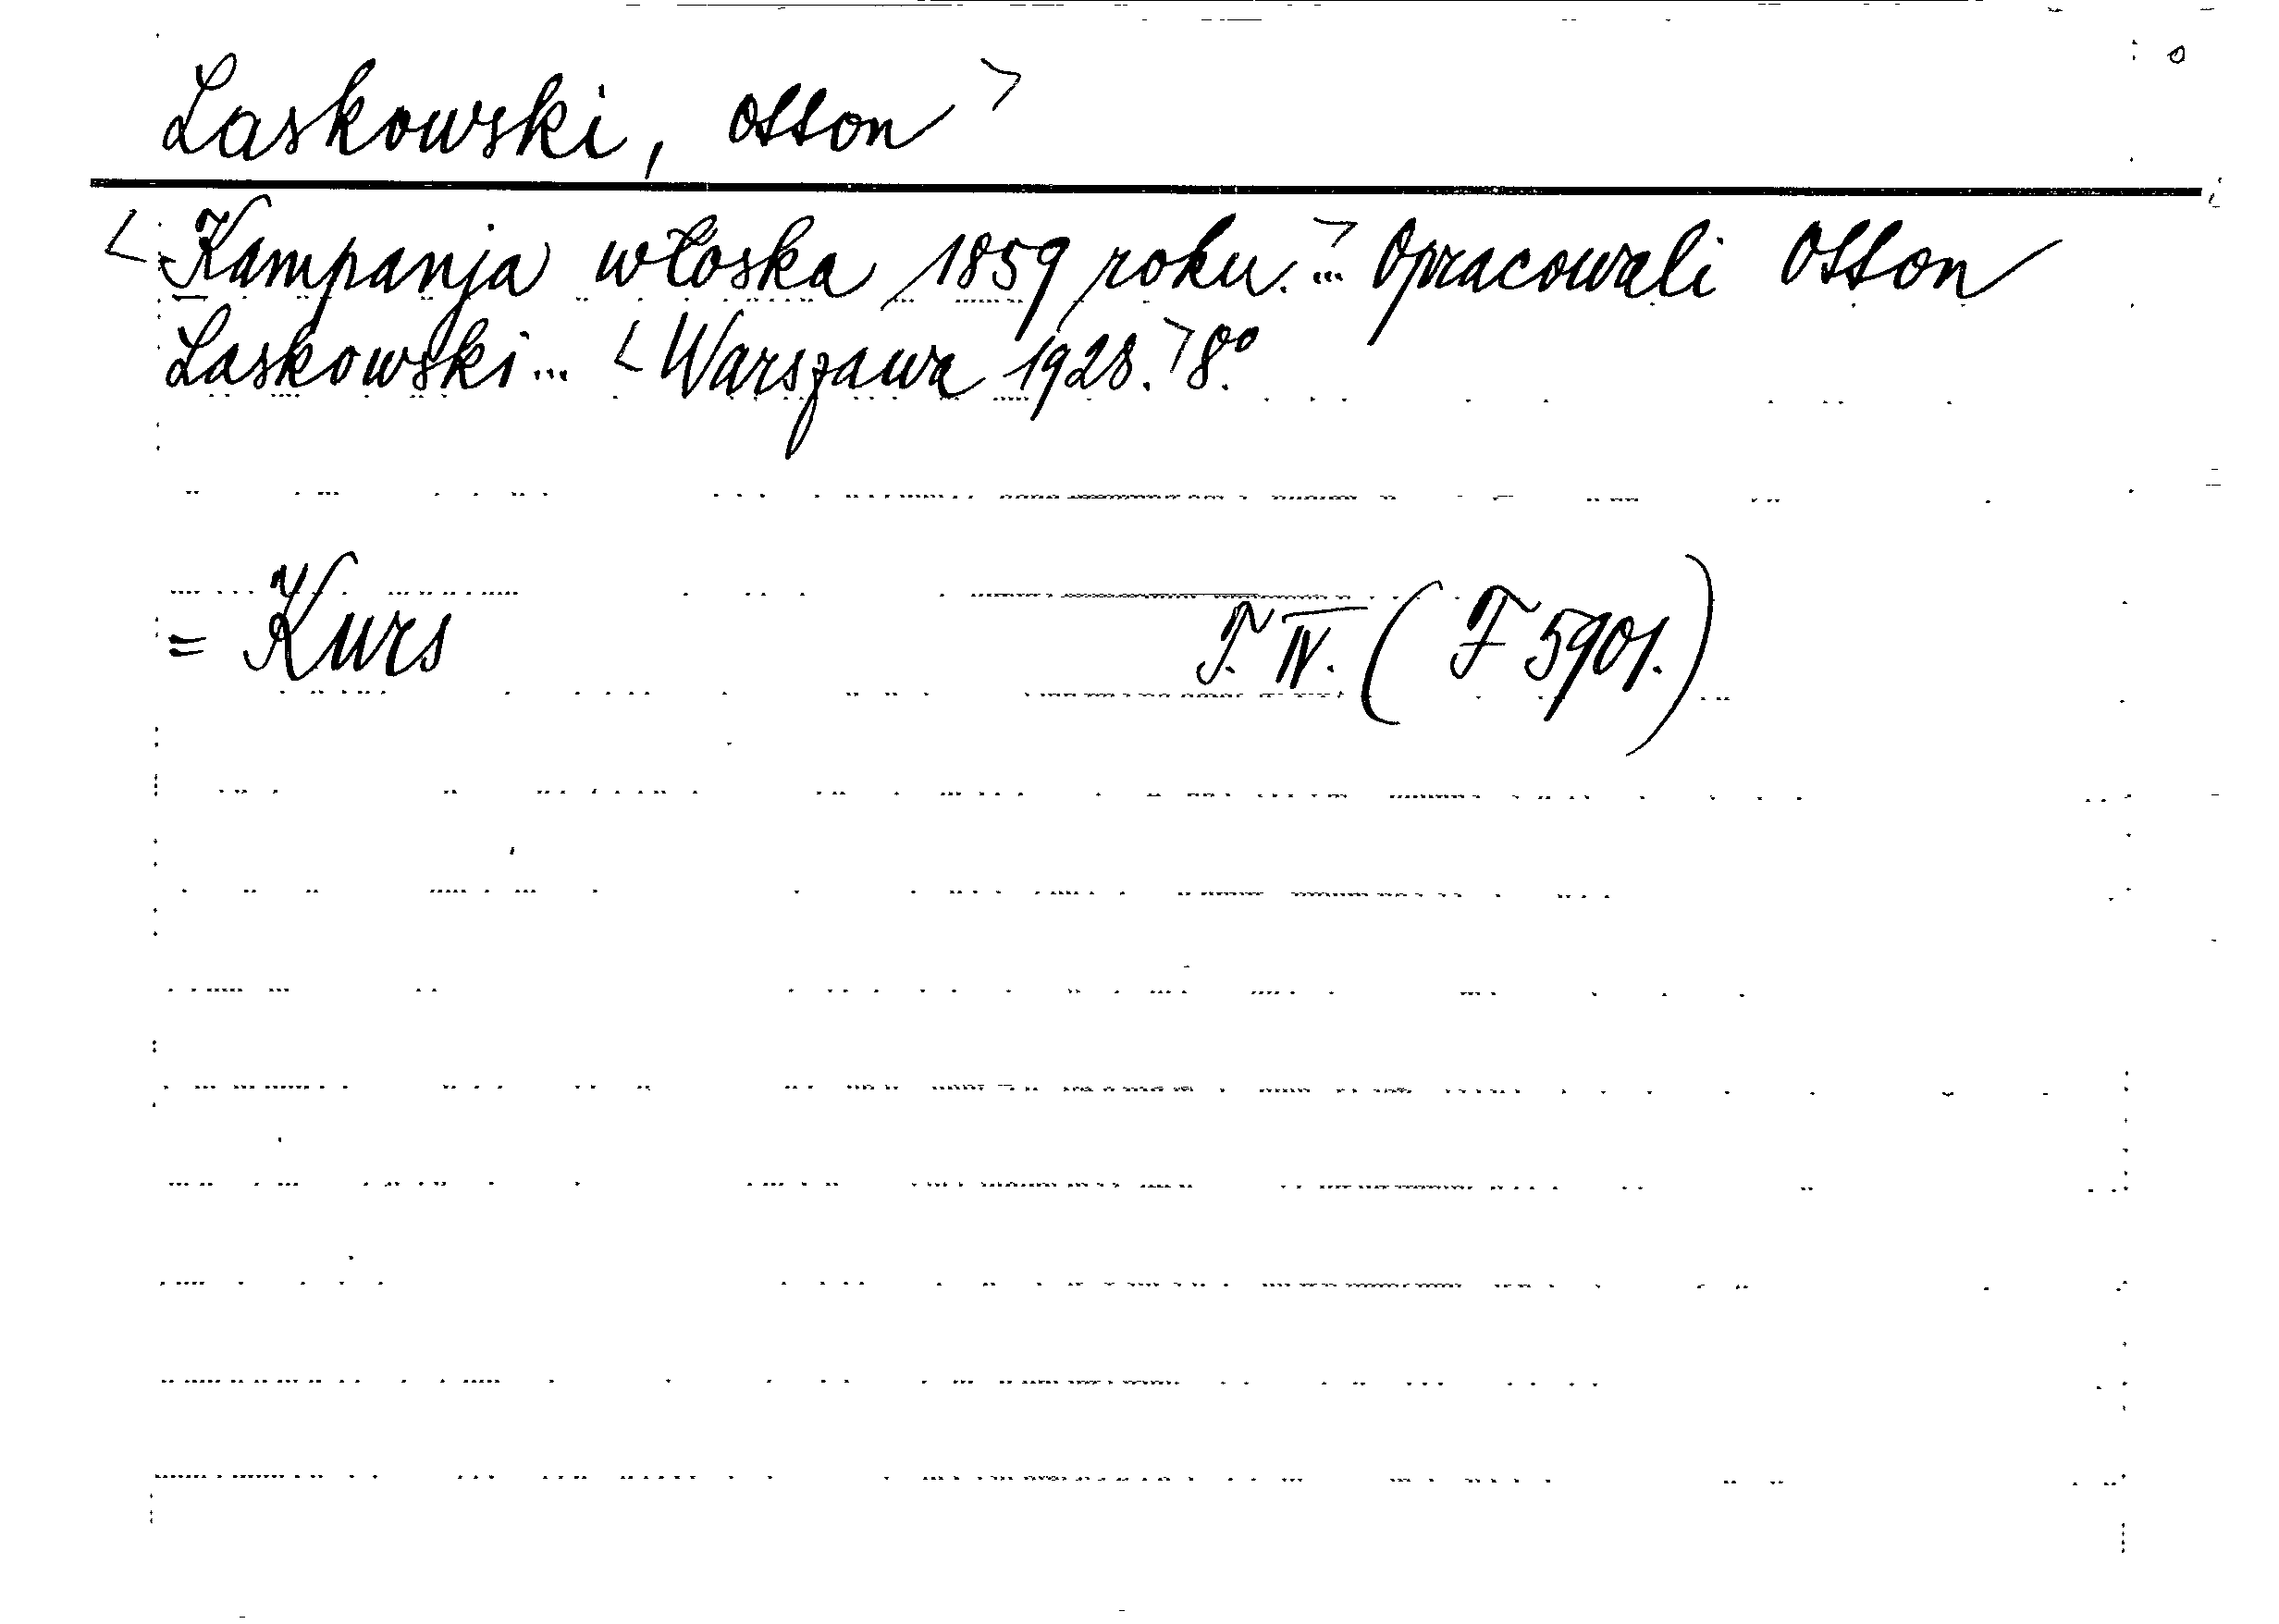 Laskowski, Otton >
< Kampanja włoska 1859 roku. > ... Opracowali Otton
Laskowski ... < Warszawa 1928. > 8.°
= Kurs T. IV. ( F 5901. )